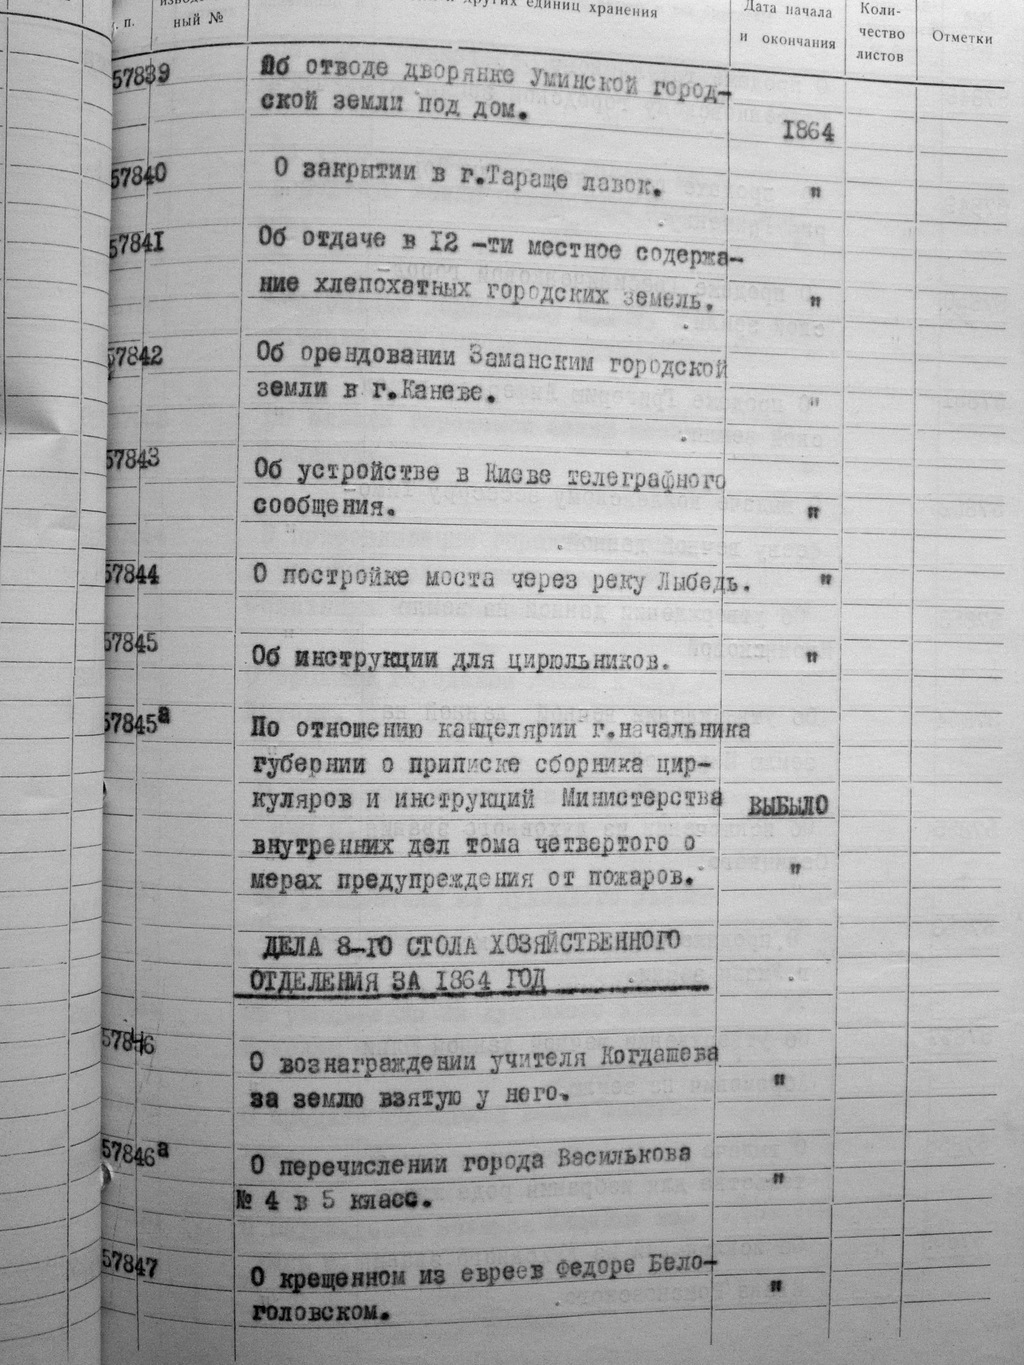 п. п.
ный №
других единиц хранения
Дата начала
и окончания
Коли-
чество
листов
Отметки
57839
Об отводе дворянке Уминской город-
ской земли под дом.
1864
57840
О закрытии в г.Тараще лавок.
"
57841
Об отдаче в 12 -ти местное содержа-
ние хлепохатных городских земель.
"
57842
Об орендовании Заманским городской
земли в г.Каневе.
"
57843
Об устройстве в Киеве телеграфного
сообщения.
"
57844
О постройке моста через реку Лыбедь.
"
57845
Об инструкции для цирюльников.
"
57845а
По отношению канцелярии г.начальника
губернии о приписке сборника цир-
куляров и инструкций Министерства
ВЫБЫЛО
внутренних дел тома четвертого о
мерах предупреждения от пожаров.
"
ДЕЛА 8-ГО СТОЛА ХОЗЯЙСТВЕННОГО
ОТДЕЛЕНИЯ ЗА 1864 ГОД
57846
О вознаграждении учителя Когдашева
за землю взятую у него.
"
57846а
О перечислении города Василькова
№ 4 в 5 класс.
"
57847
О крещенном из евреев Федоре Бело-
головском.
"